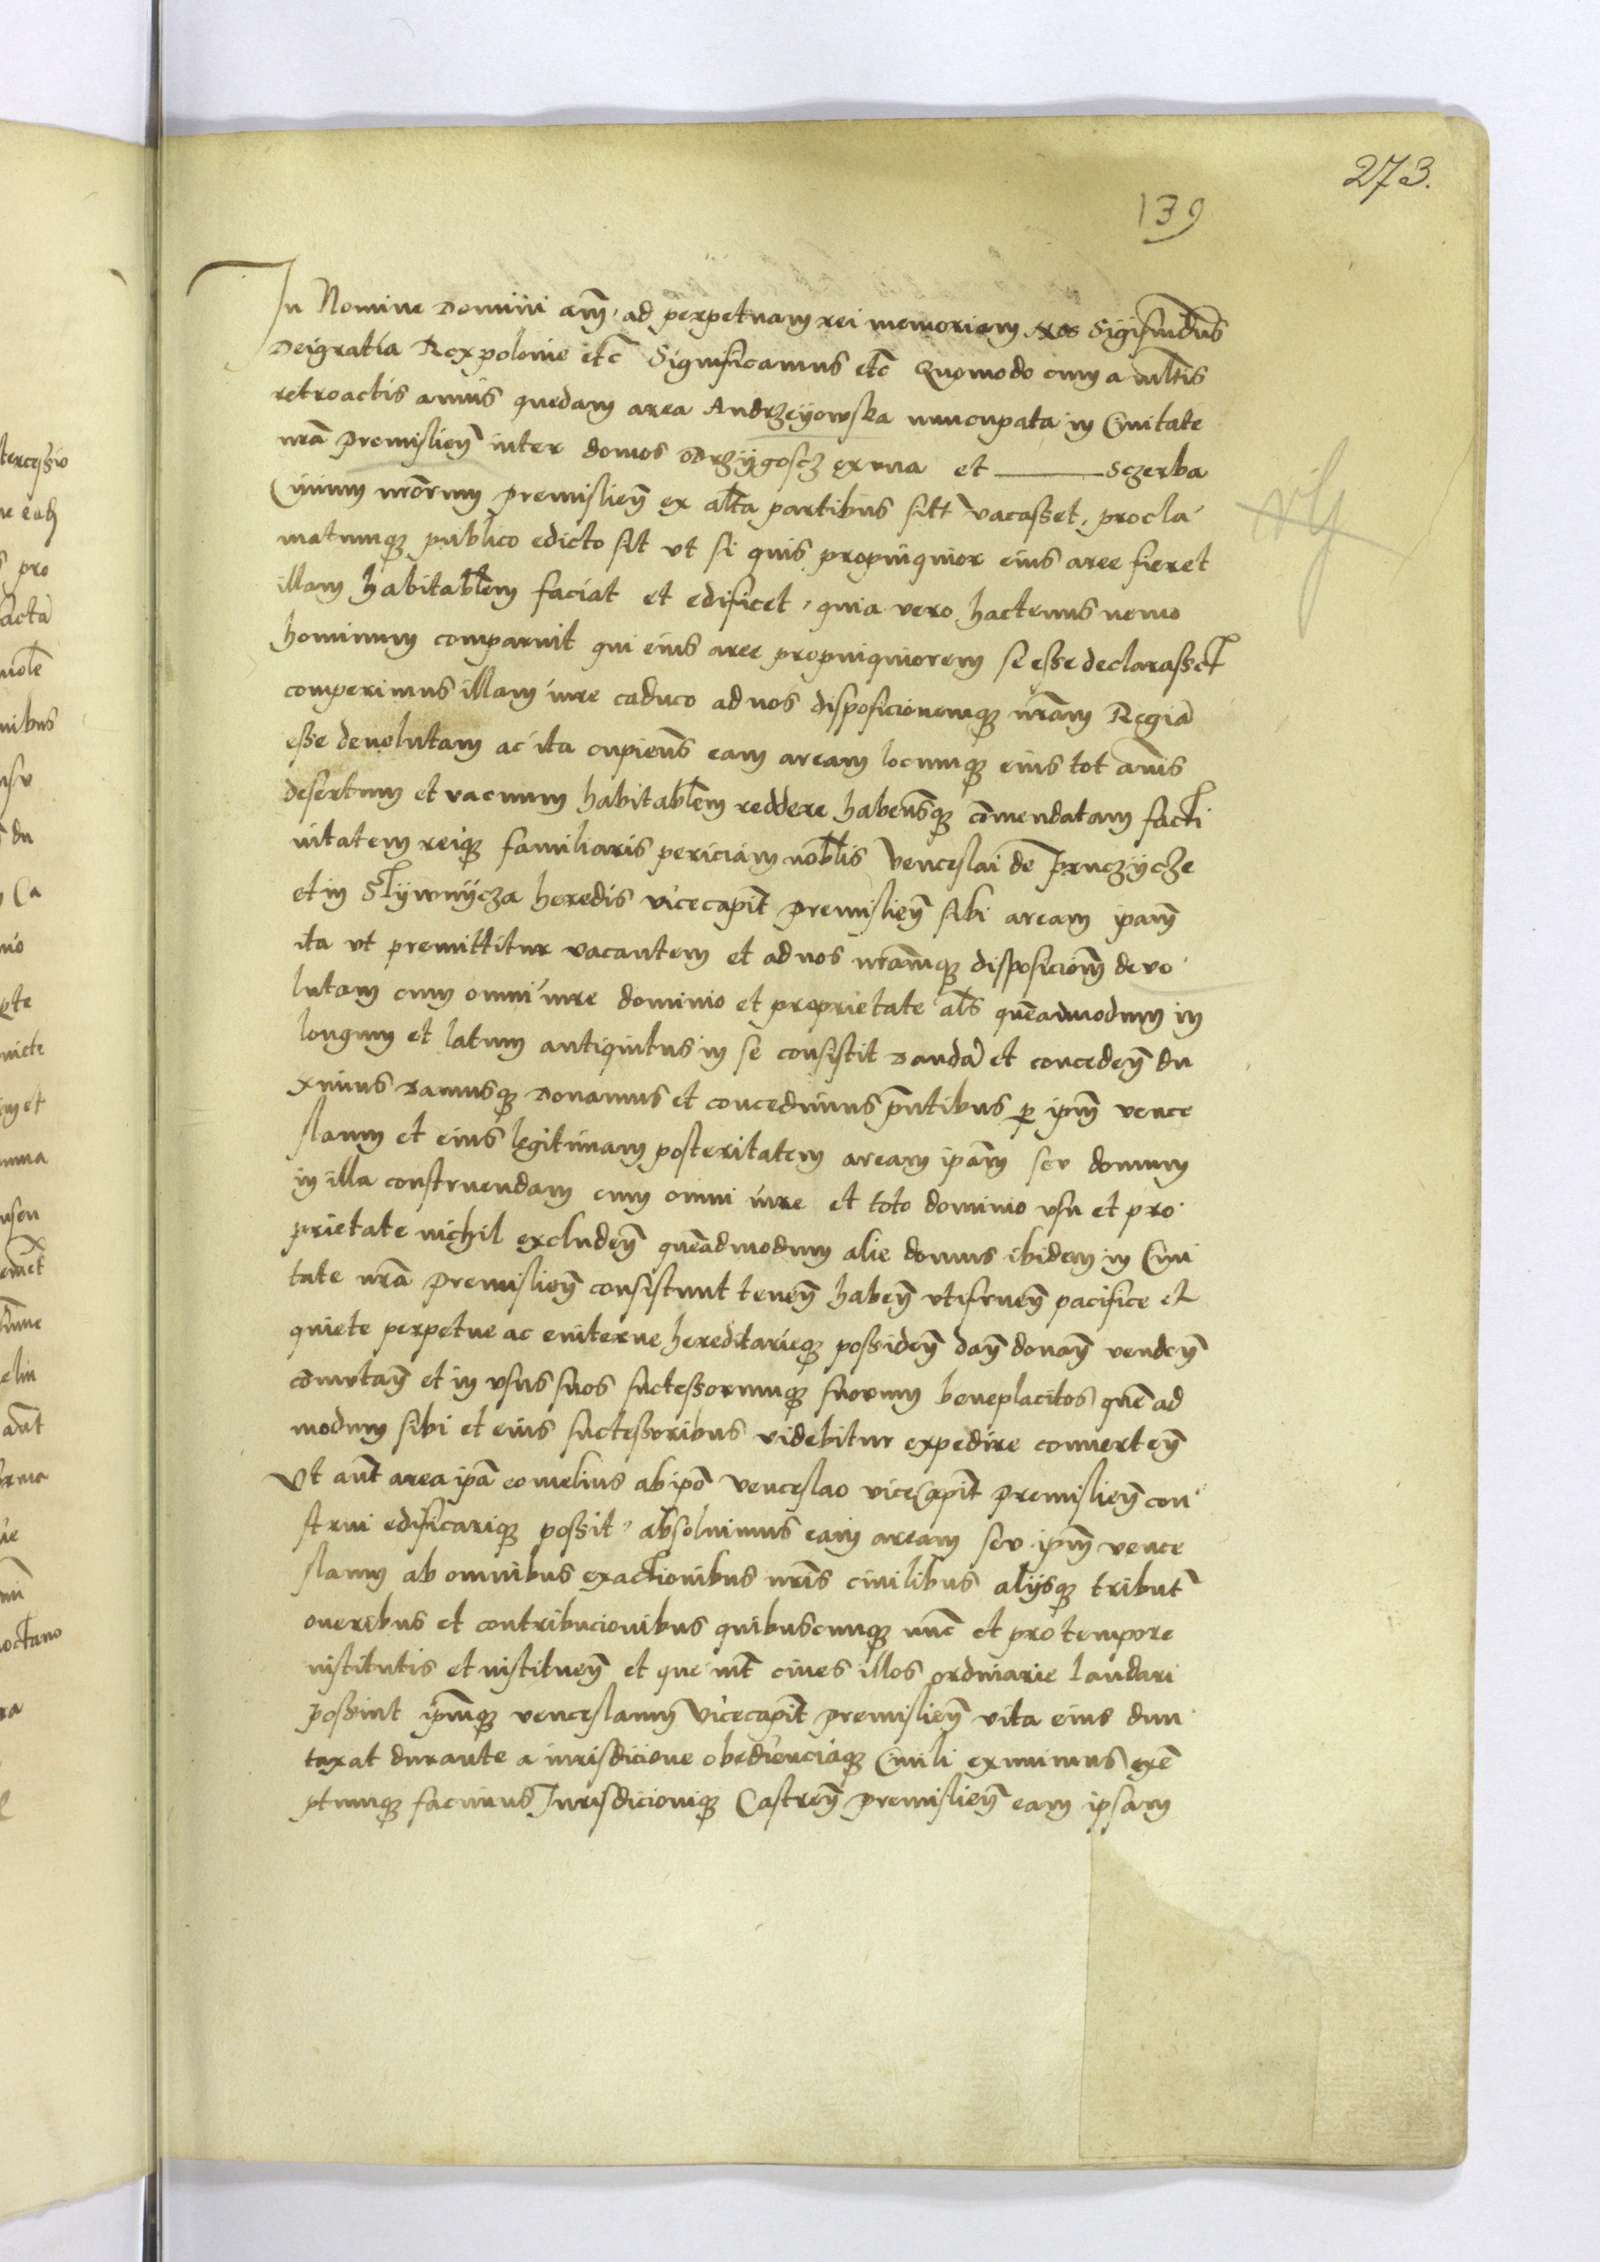 273.
139
In Nomine Domini am̄. ad perpetuam rei memoriam Nos Sigismūdus
Deigratia Rex polonie etc̄ Significamus etc̄ Quomodo cum a multis
retroactis annis quedam area Andrzeyowska nuncupata in Ciuitate
nr̄a Premislien̄ inter domos Odrzygoscz et ——— Sczerba
Ciuium nr̄orum Premislien̄ ex alt̄a partibus sitt̄ vacasset, procla
matumq publico edicto sit vt si quis propinquior eius aree fieret
illam habitabl̄em faciat et edificet, quia vero hactenus nemo
hominum comparuit qui eius aree propinquiorem se esse declarasset
comperimus illam iure caduco ad nos disposicionemq nr̄am Regiā
esse deuolutam ac ita cupien̄s eam aream locumq eius tot an̄is
desertum et vacuum habitabl̄em reddere haben̄sq cōmendatam facti
uitatem reiq familiaris periciam nobl̄is Venceslai de Pruczycze
et in Slywnycza heredis vicecapit̄ Premislien̄ sibi aream ipam̄
ita vt premittitur vacantem et ad nos nr̄amq disposiciom̄ devo
lutam cum omni iure dominio et proprietate al̄s quēadmodum in
longum et latum antiquitus in se consistit Dandā et conceden̄ du
ximus Damusq Donamus et concedimus p̄ntibus p ipm̄ vence
slaum et eius legitimam posteritatem aream ipām seu domum
in illa construendam cum omni iure et toto dominio vsu et pro
prietate nichil excluden̄ quēadmodum alie domus ibidem in Ciui
tate nr̄a Premislien̄ consistunt tenen̄ haben̄ vtifruen̄ pacifice et
quiete perpetue ac euiterne hereditarieq possiden̄ dan̄ donan̄ venden̄
cōmutan̄ et in vsus suos successorumq suorum beneplacitos quē ad
modum sibi et eius successoribus videbitur expedire conuerten̄
Vt aūt area ipā eo melius ab ipō Venceslao vicecapit̄ Premislien̄ con
strui edificariq possit, absoluimus eam aream seu ipm̄ vence
slaum ab omnibus exactionibus nr̄is ciuilibus alijsq tribut̄
oneribus et contribucionibus quibuscumq nūc et pro tempore
institutis et instituen̄ et que int̄ ciues illos ordinarie laudari
possint ipm̄q venceslaum Vicecapit̄ Premislien̄ vita eius dun
taxat durante a iurisdicione obedienciaq Ciuili eximimus exē
ptumq facimus Jurisdicioniq Castren̄ Premislien̄ eam ipsam